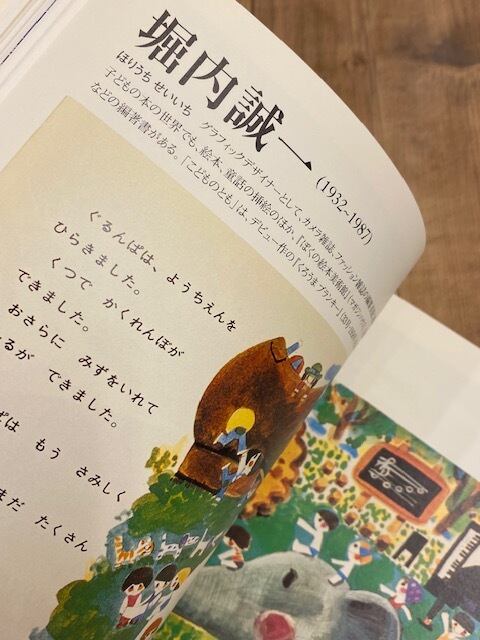 堀内誠一
(1932~1987)
ほりうち せいいち グラフィックデザイナーとして、カメラ雑誌、ファッション雑誌の編集
子どもの本の世界でも、絵本、童話の挿絵のほか、『ぼくの絵本美術館』(マガジン
などの編著書がある。「こどものとも」は、デビュー作の『くろうまブランキー』
ぐるんぱは、ようちえんを
ひらきました。
くつで かくれんぼが
できました。
おさらに みずをいれて
るが できました。
ぱは もう さみしく
まだ たくさん